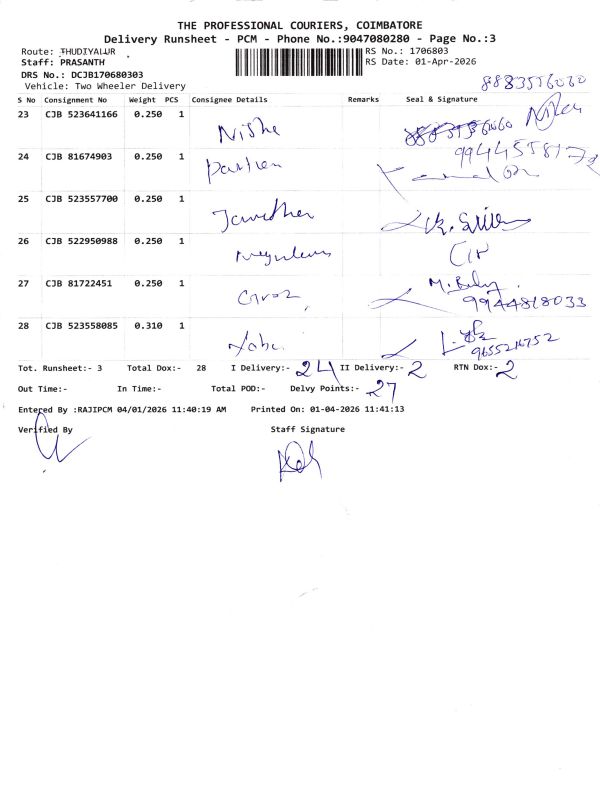 THE PROFESSIONAL COURIERS, COIMBATORE
Delivery Runsheet - PCM - Phone No.:9047080280 - Page No.:3
Route: THUDIYALUR RS No.: 1706803
Staff: PRASANTH RS Date: 01-Apr-2026
DRS No.: DCJB170680303
Vehicle: Two Wheeler Delivery
8883556060
S No Consignment No Weight PCS Consignee Details Remarks Seal & Signature
23 CJB 523641166 0.250 1 Nishe
24 CJB 81674903 0.250 1
25 CJB 523557700 0.250 1
26 CJB 522950988 0.250 1
27 CJB 81722451 0.250 1
9944818033
28 CJB 523558085 0.310 1
Tot. Runsheet:- 3 Total Dox:- 28 I Delivery:- 24 II Delivery:- 2 RTN Dox:- 2
Out Time:- In Time:- Total POD:- Delvy Points:- 27
Entered By :RAJIPCM 04/01/2026 11:40:19 AM Printed On: 01-04-2026 11:41:13
Verified By Staff Signature